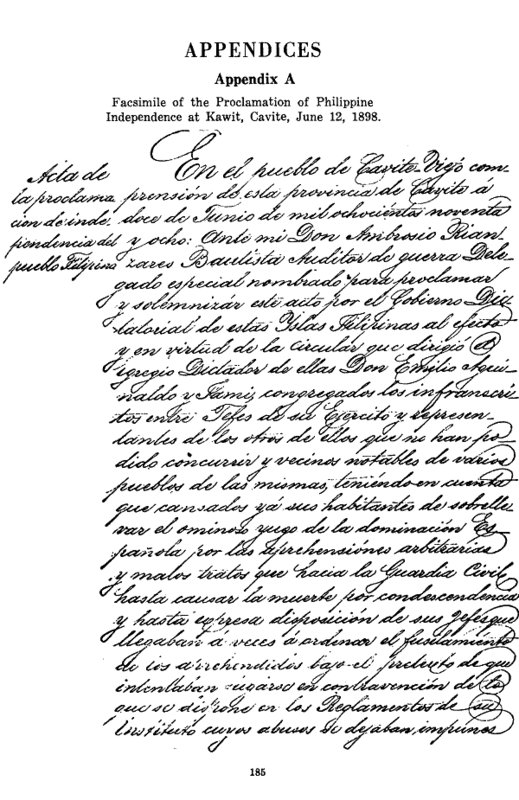 APPENDICES
Appendix A
Facsimile of the Proclamation of Philippine
Independence at Kawit, Cavite, June 12, 1898.
Acta de
la proclama
cion de inde
pendencia del
pueblo Filipino
En el pueblo de Cavite-Viejo com-
prensión de esta provincia de Cavite á
doce de Junio de mil ochocientos noventa
y ocho: Ante mi Don Ambrosio Rian-
zares Bautista Auditor de guerra Dele-
gado especial nombrado para proclamar
y solemnizár este acto por el Gobierno Dic
tatorial de estas Yslas Filipinas al efecto
y en virtud de la circular que dirigió el
egregio Dictador de ellas Don Emilio Agui
naldo y Famy, congregados los infrascri
tos entre Jefes de su Ejercito y represen-
tantes de los otros de ellos que no han po
dido concurrir y vecinos notables de varios
pueblos de las mismas, teniendo en cuenta
que cansados yá sus habitantes de sobrelle
var el ominoso yugo de la dominación Es
pañola por las aprehensiónes arbitrarias
y malos tratos que hacia la Guardia Civil
hasta causar la muerte por condescendencia
y hasta expresa disposición de sus Jefes que
llegaban á veces á ordenar el fusilamiento
de los aprehendidos bajo el pretexto de que
intentaban fugarse en contravención de lo
que se dispone en los Reglamentos de su
Instituto cuyos abusos se dejaban impunes
185